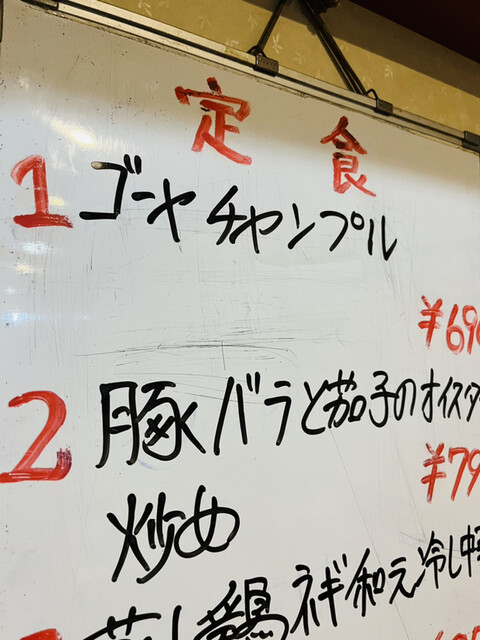 定食
1 ゴーヤチャンプル
¥690
2 豚バラと茄子のオイスター
¥79
炒め
蒸し鶏ネギ和え冷し中